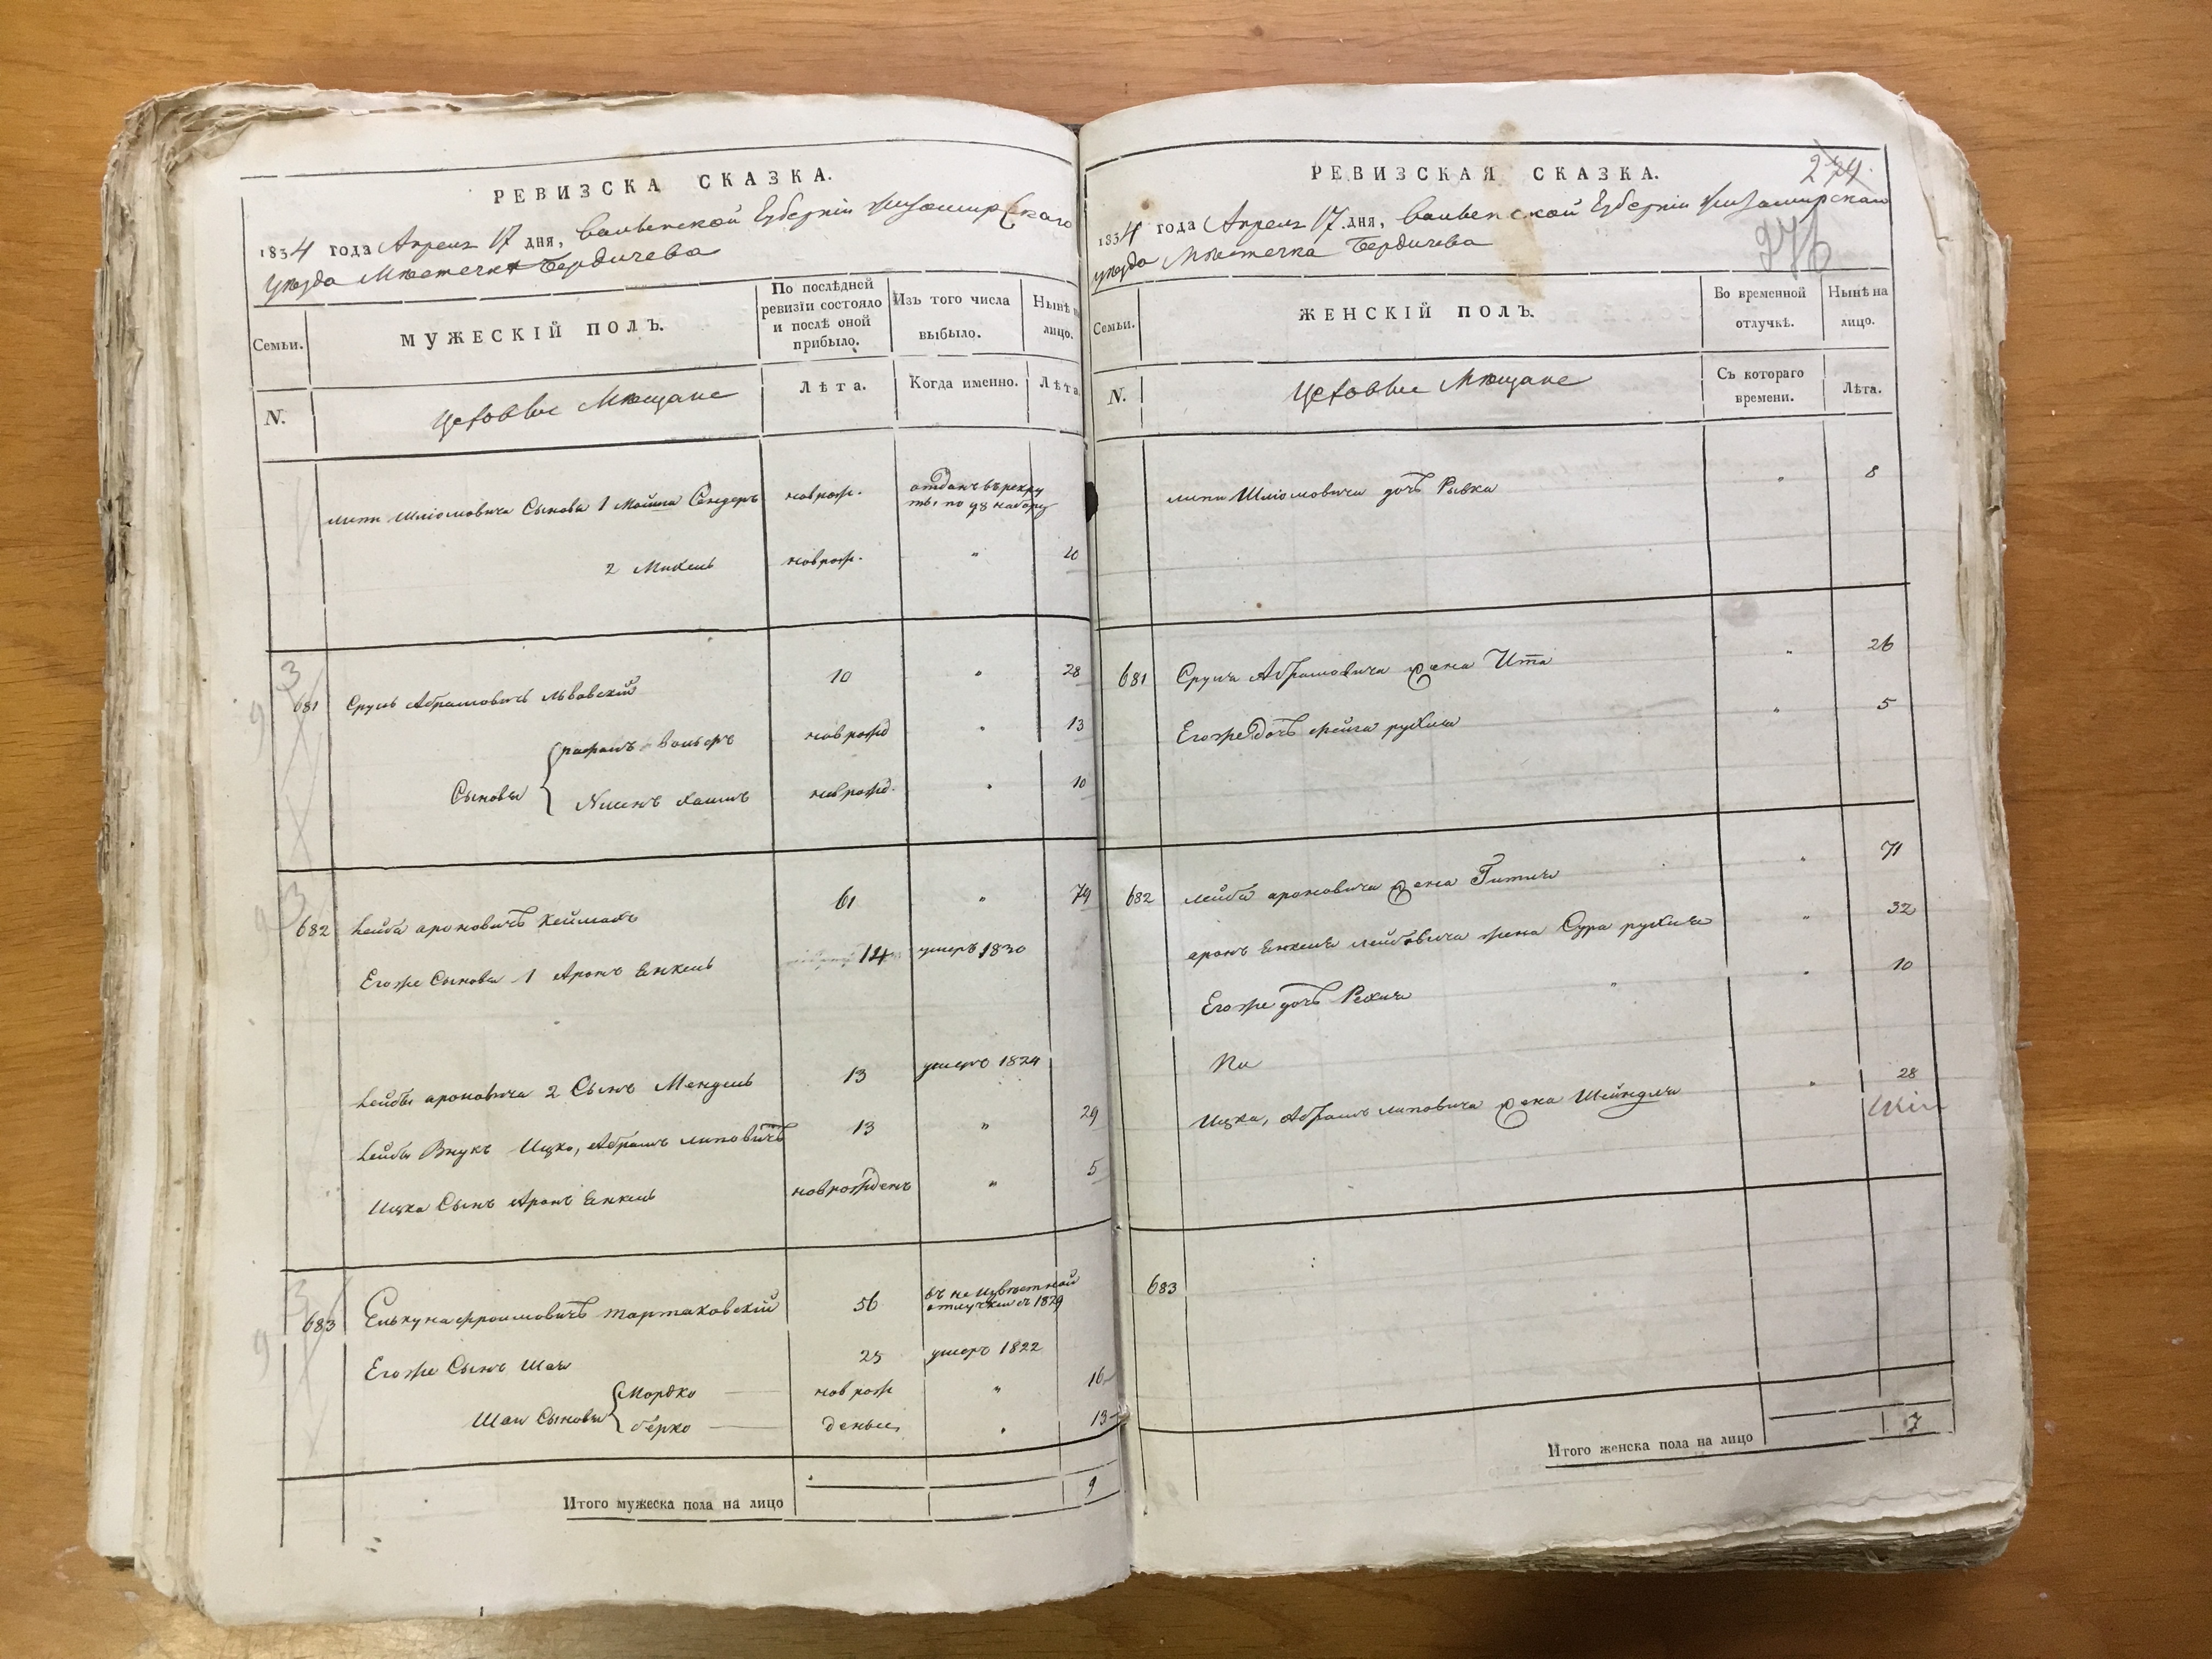 РЕВИЗСКА СКАЗКА.
1834 года Апреля 17 дня, Волынской Губерніи Житомирскаго
уѣзда Мѣстечка Бердичева
Семьи.
МУЖЕСКІЙ ПОЛЪ.
По послѣдней ревизіи состояло и послѣ оной прибыло.
Изъ того числа выбыло.
Нынѣ
лицо.
N.
Цеховые Мѣщане
Лѣта.
Когда именно.
Лѣта
Шліомовича Сыновья 1 Мойша Сендеръ новрож. отданъ въ рекру
ты по 98 набору
2 Михель новрож. " 20
681 Сруль Абрамовичъ Львовскій 10 " 28
Рафаилъ Вольфъ новрожд " 13
Сыновья
Нисенъ Хаимъ новрожд. " 10
682 Лейба Ароновичъ Хеймахъ 61 " 79
Егоже Сыновья 1 Аронъ Енкель 14 умеръ 1830
Лейбы Ароновича 2 Сынъ Мендель 13 умеръ 1824
Лейбы Внукъ Ицко, Абрамъ Липовичъ 13 " 29
Ицка Сынъ Аронъ Енкель новрожденъ " 5
683 Елькуна Фроимовичъ Тартаковскій 56 въ не извѣстной
отлучки съ 1829
Егоже Сынъ Шая 25 умеръ 1822
Мордко новрож " 16
Шаи Сыновья
Берко деные " 13
Итого мужеска пола на лицо 9
РЕВИЗСКАЯ СКАЗКА.
274
276
1834 года Апреля 17 дня, Волынской Губерніи Житомирскаго
уѣзда Мѣстечка Бердичева
Семьи.
ЖЕНСКІЙ ПОЛЪ.
Во временной отлучкѣ.
Нынѣ на лицо.
N.
Цеховые Мѣщане
Съ котораго времени.
Лѣта.
Шліомовича дочь Рывка " 8
681 Сруля Абрамовича жена Ита " 26
Егоже дочь Фейга Рухля " 5
682 Лейба Ароновича жена Гитля " 71
Аронъ Енкеля Лейбовича жена Сура Рухля " 32
Егоже дочь Рехля " 10
Ицка, Абрамъ Липовича жена Шейндля " 28
683
Итого женска пола на лицо 7